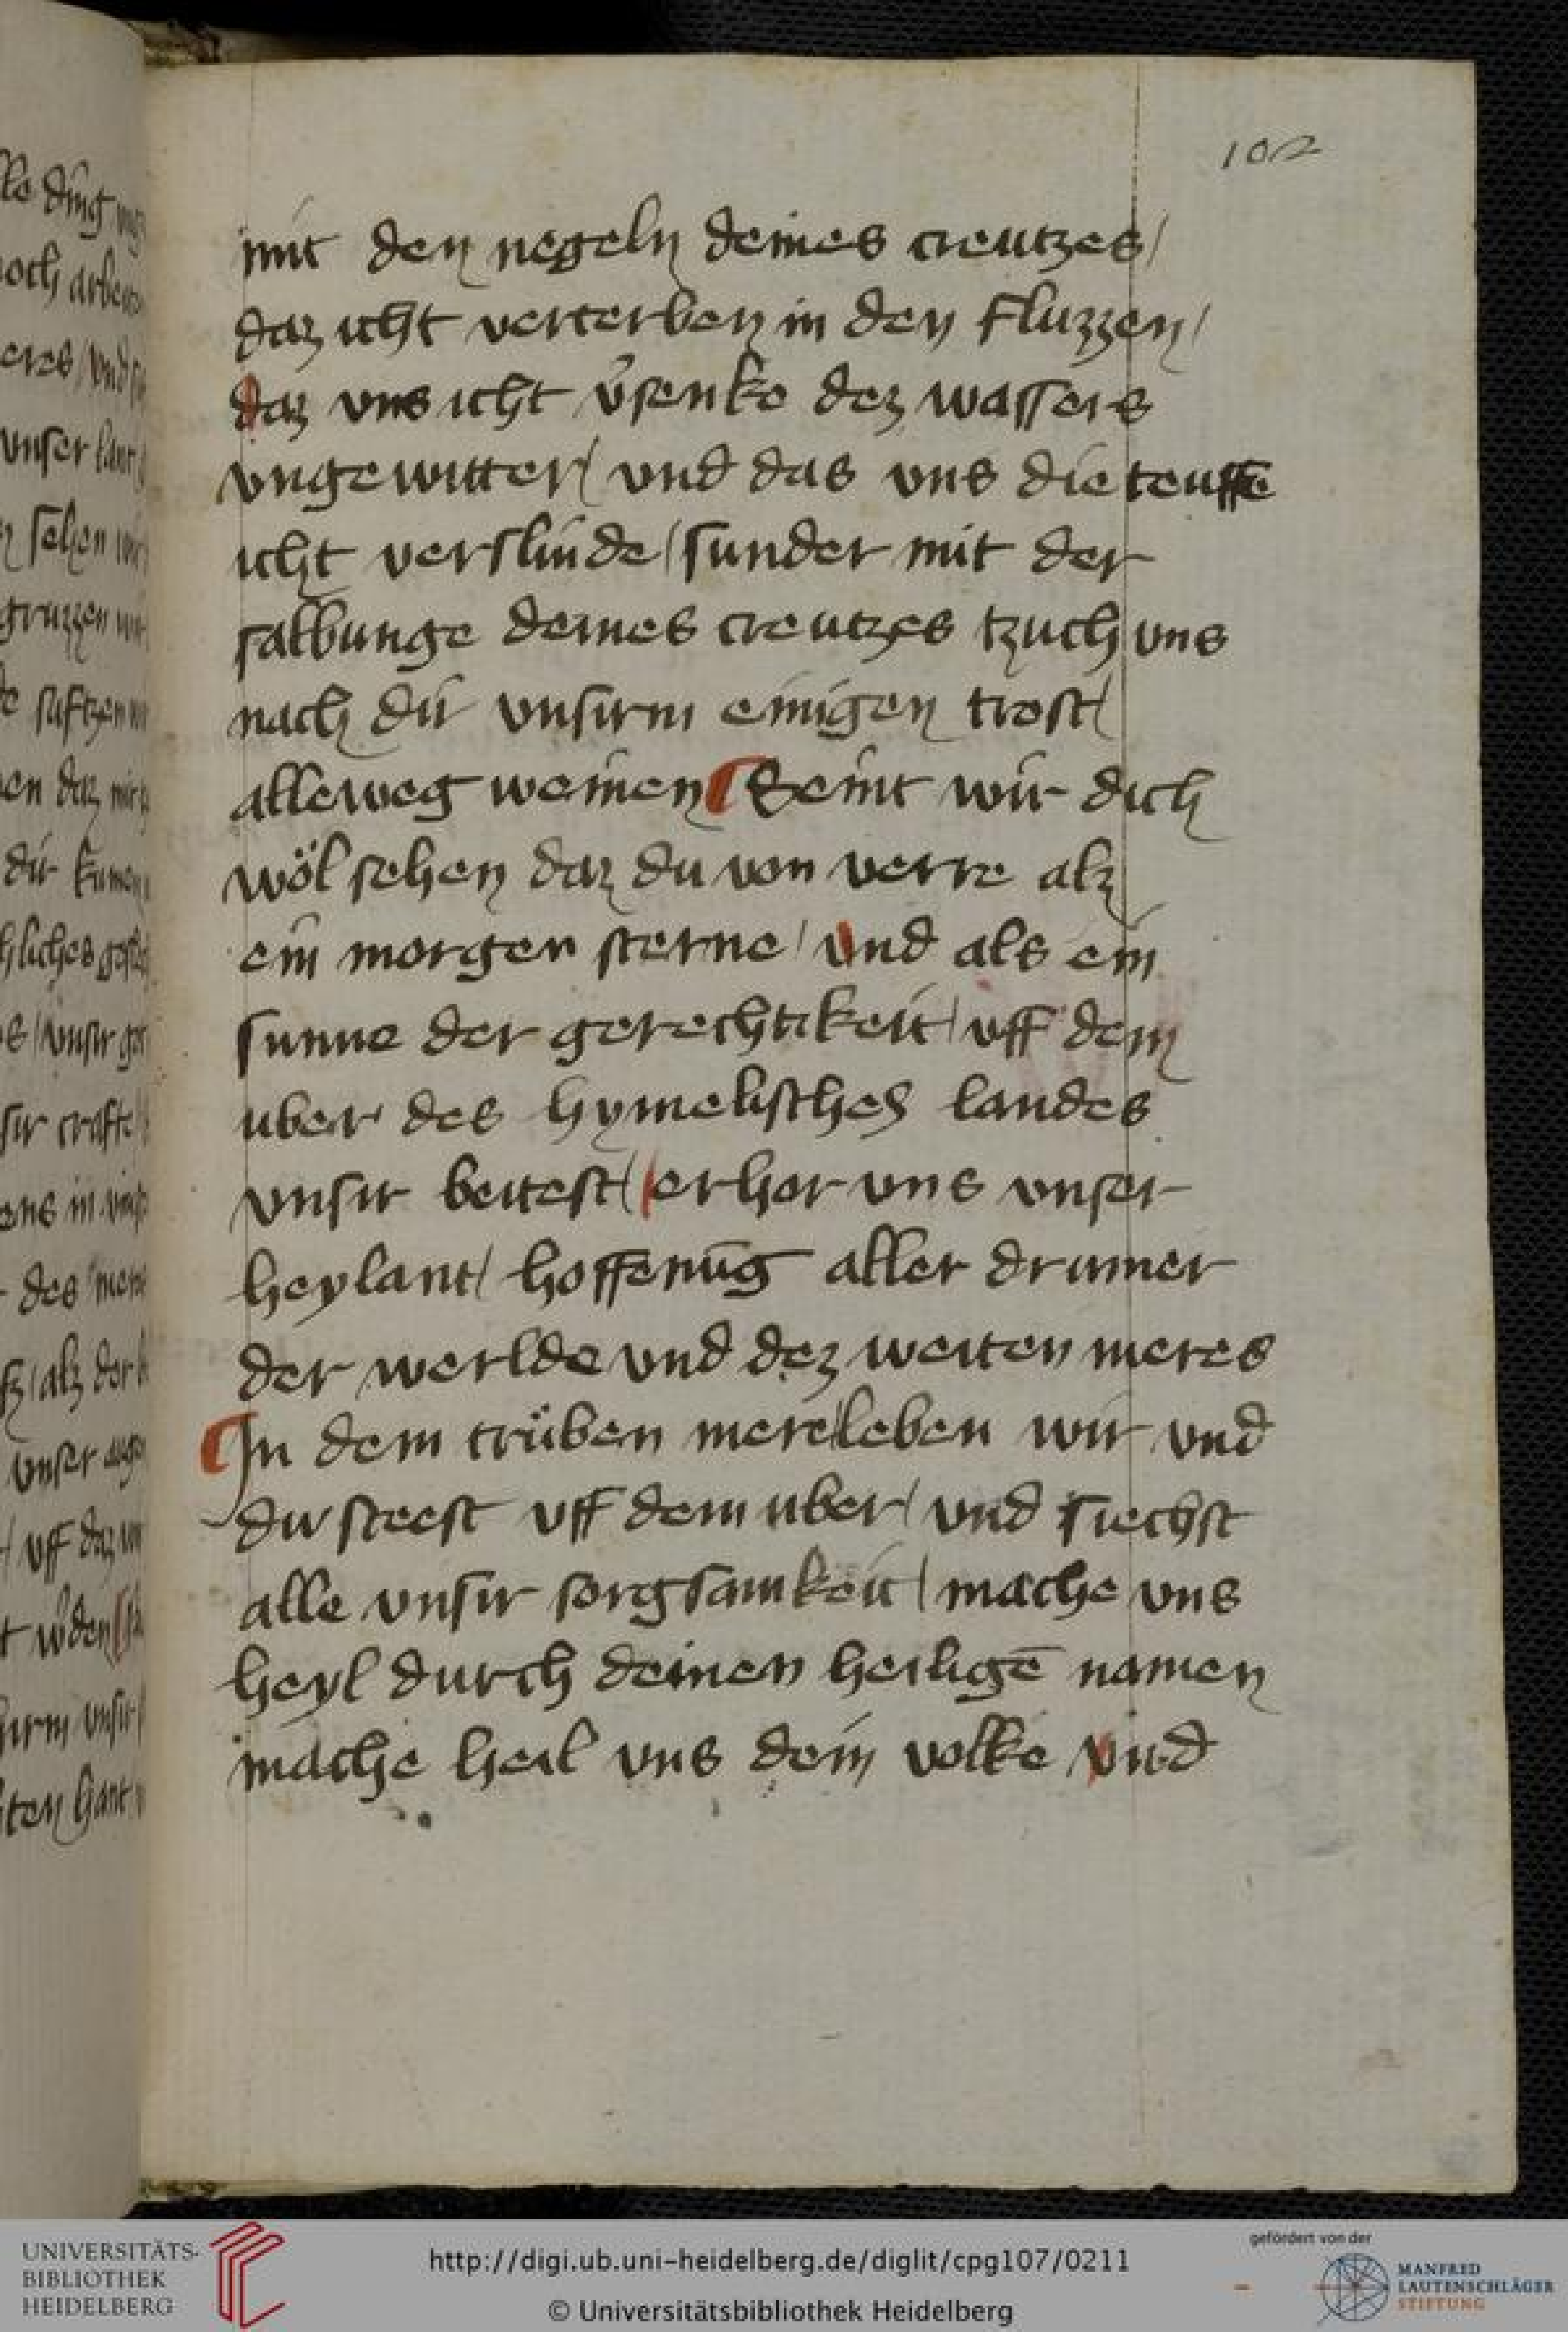 102
mit den negeln deines creutzes/
daz icht verterben in den fluzzen/
daz vns icht v̓senke dez wassers
vngewitter/ vnd das vns die teuffē
icht verslinde/ sunder mit der
salbunge deines creutzes tzuch vns
nach dir vnsirm einigen trost/
alleweg weinen ¶ Seint wir dich
wöl sehen daz du von verre alz
ein morgen sterne/ vnd als ein
sunne der gerechtikeit/ vff dem
uber des hymelisches landes
vnsir beitest/ erhor vns vnser
heylant/ hoffenūg aller drumer
der werlde vnd dez weiten meres
¶ In dem trüben mere leben wir vnd
du steest vff dem uber/ vnd siechst
alle vnsir sorgsamkeit/ mache vns
heyl durch deinen heiligē namen
mache heil vns dein volke vnd
UNIVERSITÄTS-
BIBLIOTHEK
HEIDELBERG
http://digi.ub.uni-heidelberg.de/diglit/cpg107/0211
© Universitätsbibliothek Heidelberg
gefördert von der
MANFRED
LAUTENSCHLÄGER
STIFTUNG